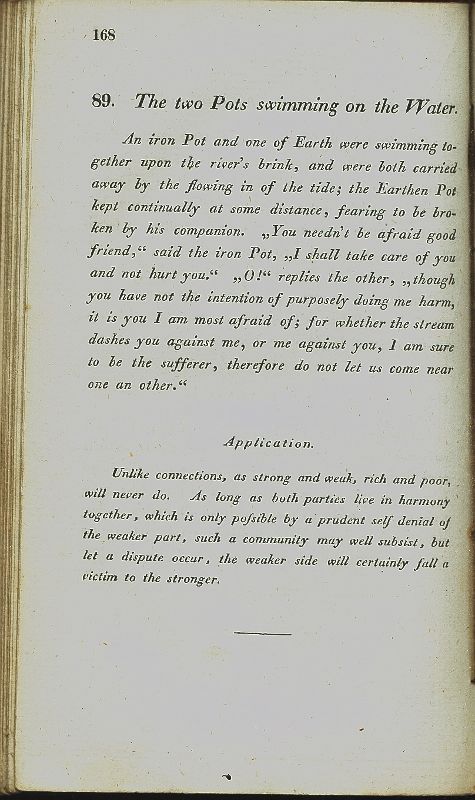 168
89. The two Pots swimming on the Water.
An iron Pot and one of Earth were swimming to-
gether upon the river's brink, and were both carried
away by the flowing in of the tide; the Earthen Pot
kept continually at some distance, fearing to be bro-
ken by his companion. „You needn't be afraid good
friend,“ said the iron Pot, „I shall take care of you
and not hurt you.“ „O!“ replies the other, „though
you have not the intention of purposely doing me harm,
it is you I am most afraid of; for whether the stream
dashes you against me, or me against you, I am sure
to be the sufferer, therefore do not let us come near
one an other.“
Application.
Unlike connections, as strong and weak, rich and poor,
will never do. As long as both parties live in harmony
together, which is only poſsible by a prudent self denial of
the weaker part, such a community may well subsist, but
let a dispute occur, the weaker side will certainly fall a
victim to the stronger.